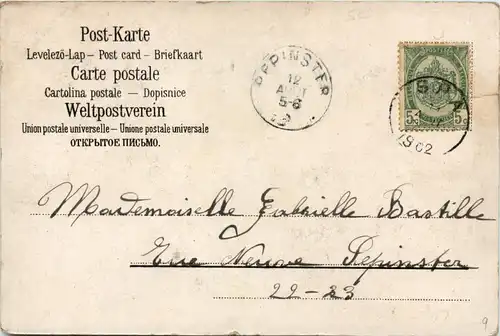 Post-Karte
Levelező-Lap — Post card — Briefkaart
Carte postale
Cartolina postale — Dopisnice
Weltpostverein
Union postale universelle — Unione postale universale
ОТКРЫТОЕ ПИСЬМО.
PEPINSTER
12
AOUT
5-6
5 5c
1902
Mademoiselle Gabrielle Bastille
Rue Neuve Pepinster
22-23
9